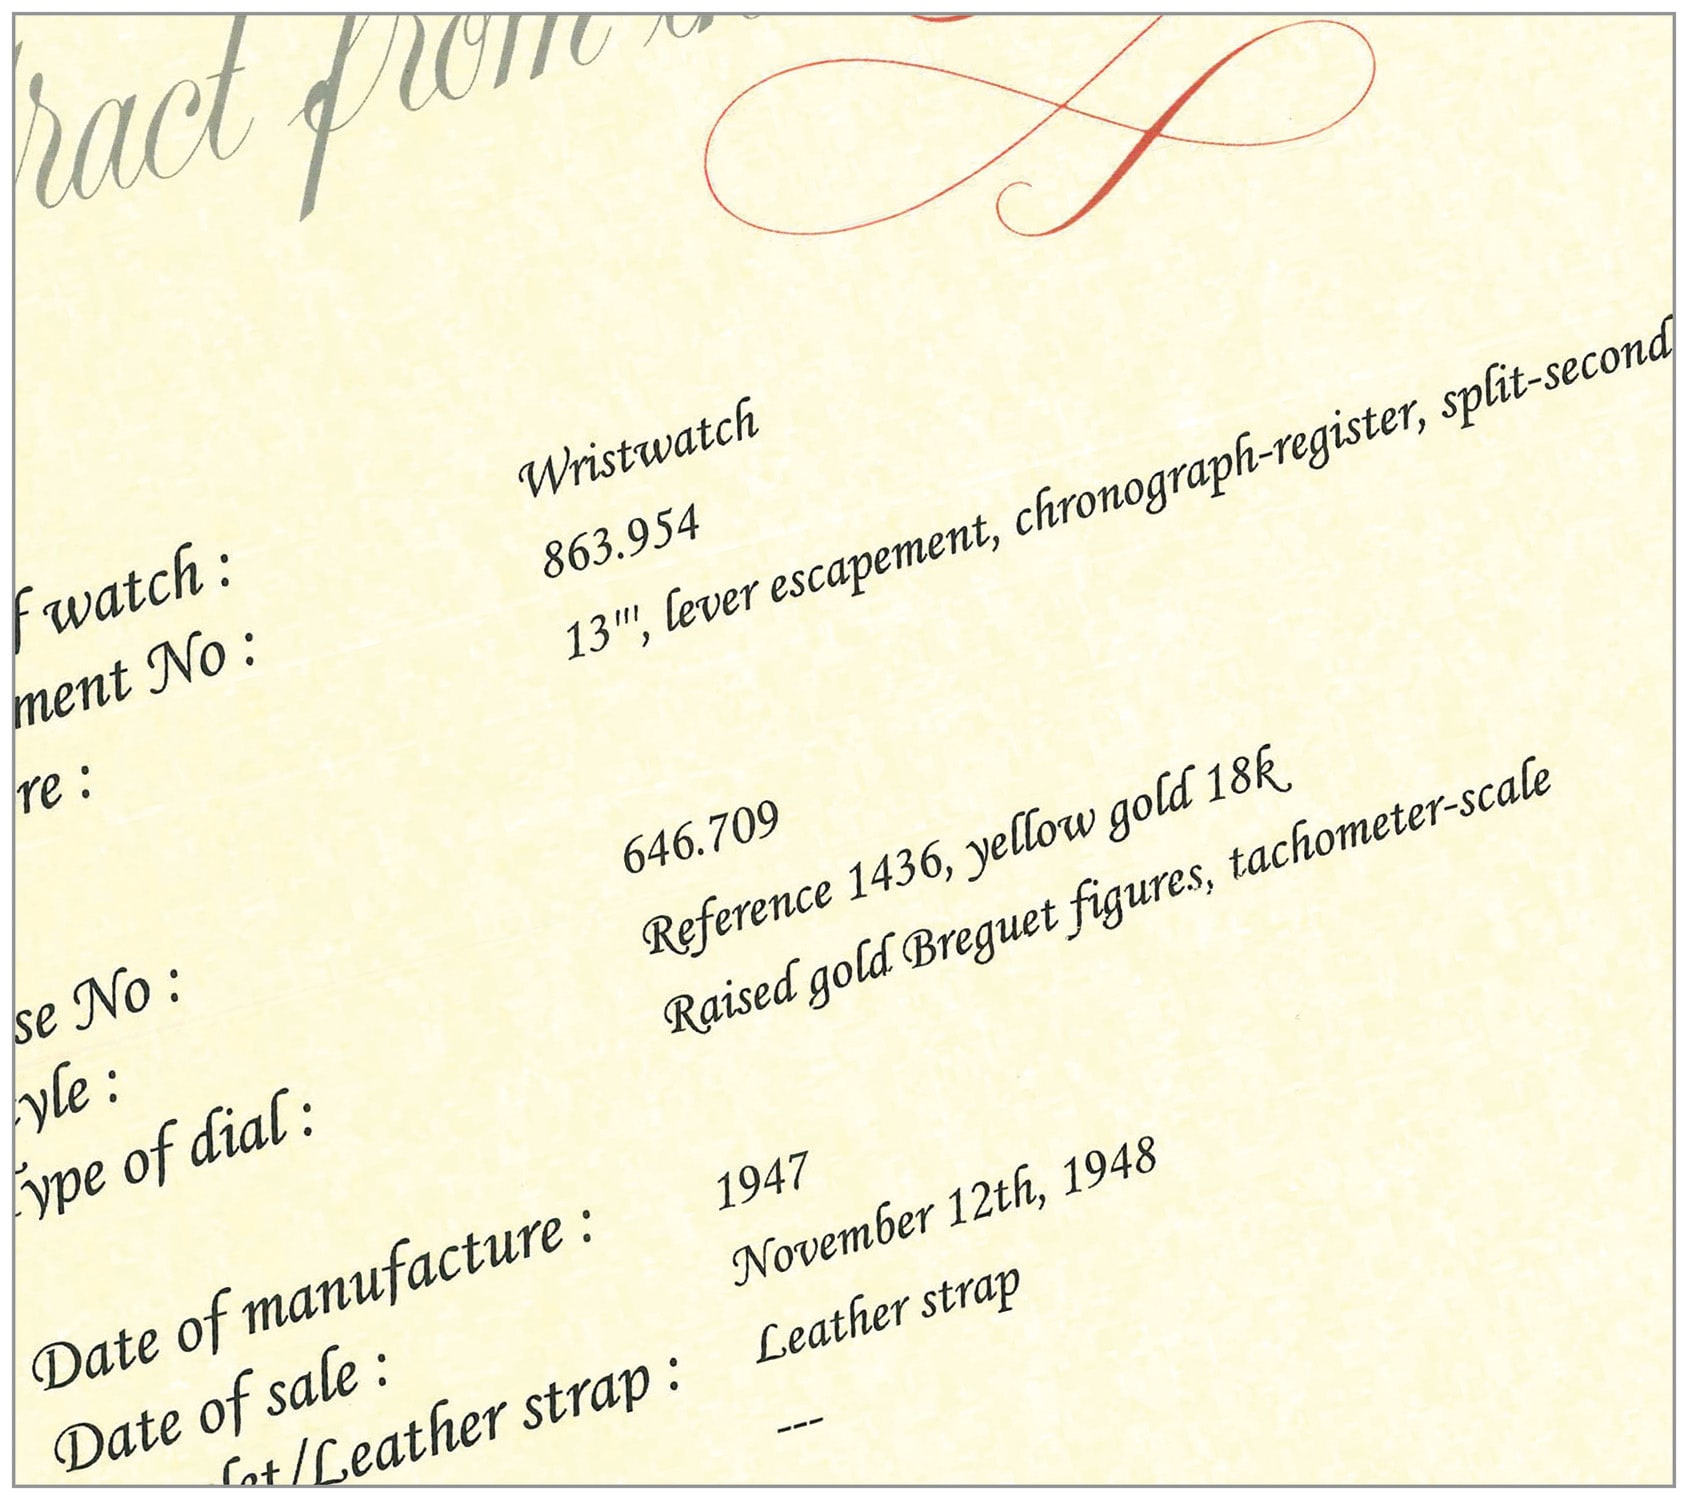 ract from
f watch : Wristwatch
ment No : 863.954
re : 13''', lever escapement, chronograph-register, split-second
se No : 646.709
yle : Reference 1436, yellow gold 18k
ype of dial : Raised gold Breguet figures, tachometer-scale
Date of manufacture : 1947
Date of sale : November 12th, 1948
let/Leather strap : Leather strap
---